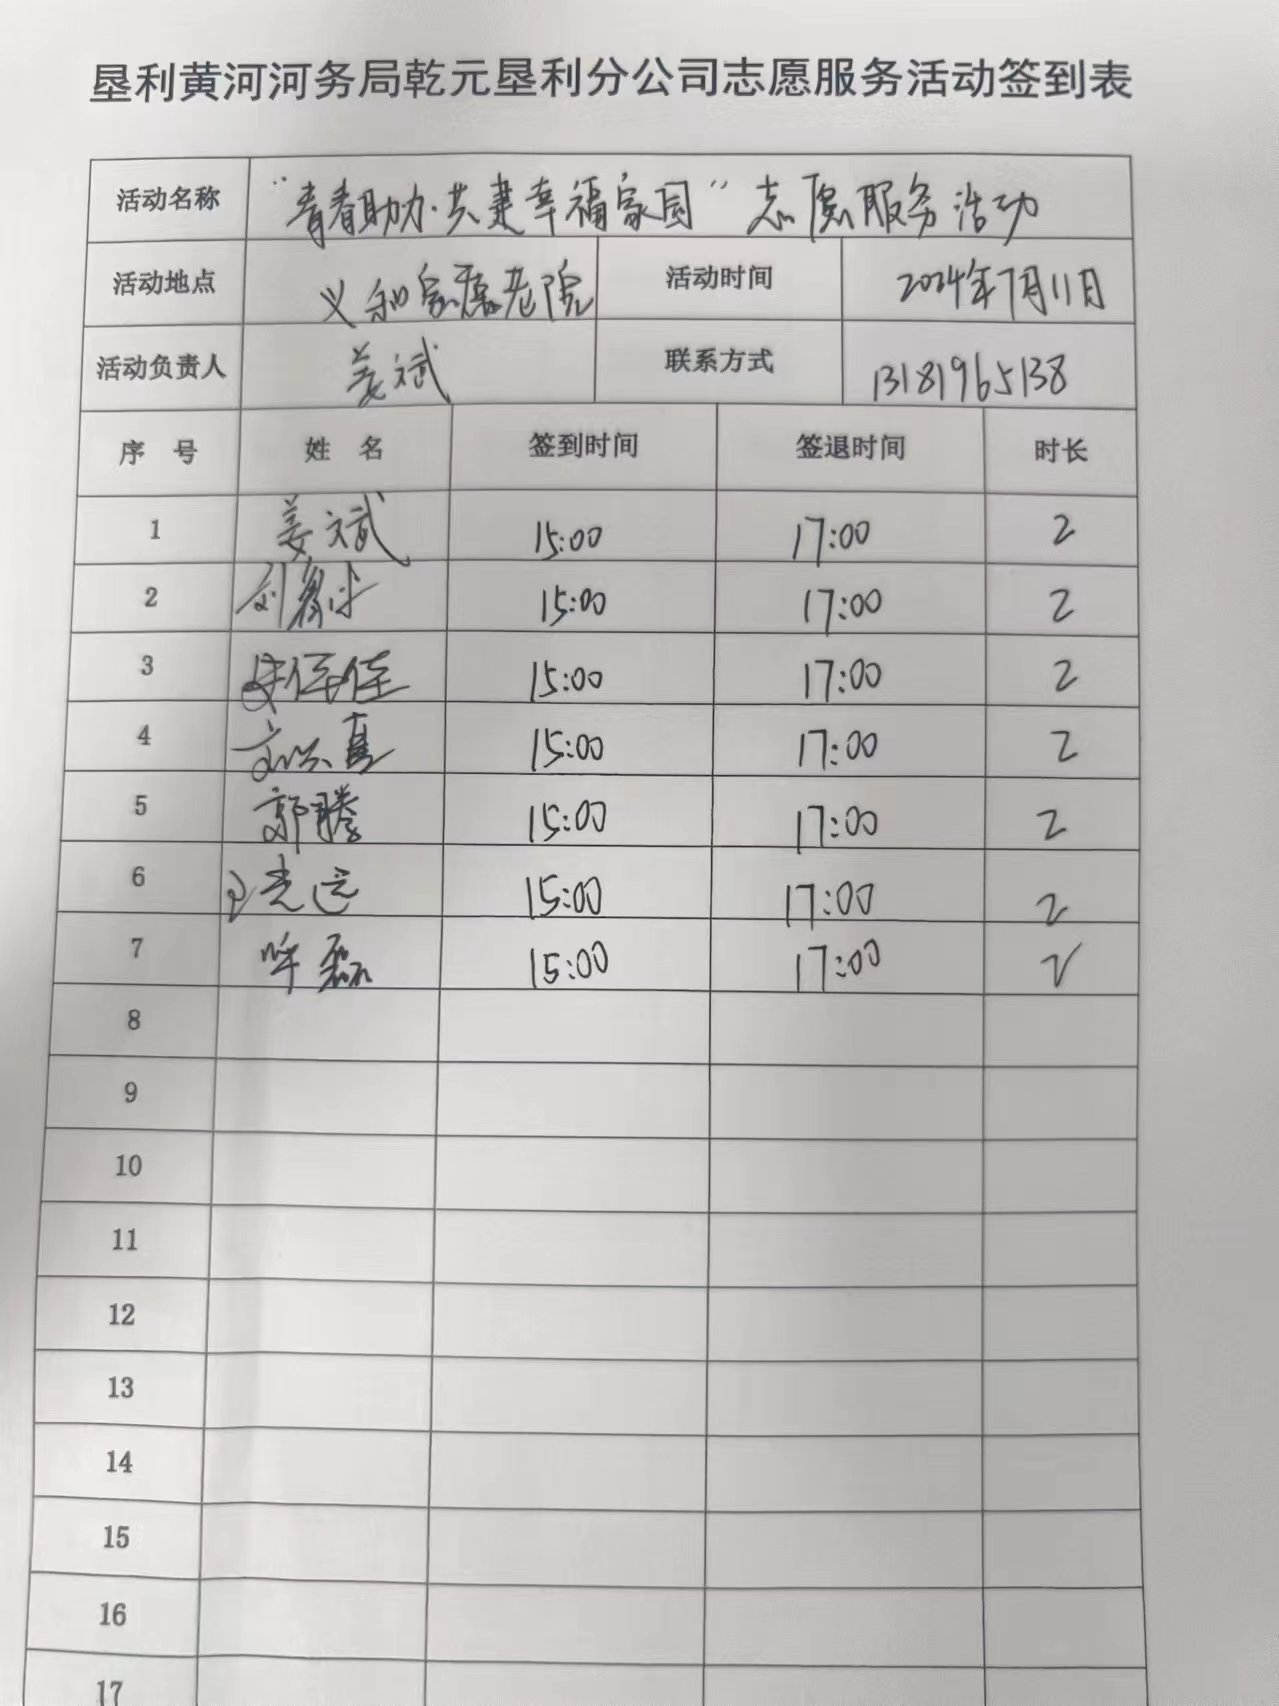 垦利黄河河务局乾元垦利分公司志愿服务活动签到表
活动名称 “青春助力·共建幸福家园”志愿服务活动
活动地点 义和家康老院 活动时间 2024年7月11日
活动负责人 姜斌 联系方式 13181965138
序 号 姓 名 签到时间 签退时间 时长
1 姜斌 15:00 17:00 2
2 15:00 17:00 2
3 15:00 17:00 2
4 15:00 17:00 2
5 郭腾 15:00 17:00 2
6 15:00 17:00 2
7 15:00 17:00 2
8
9
10
11
12
13
14
15
16
17